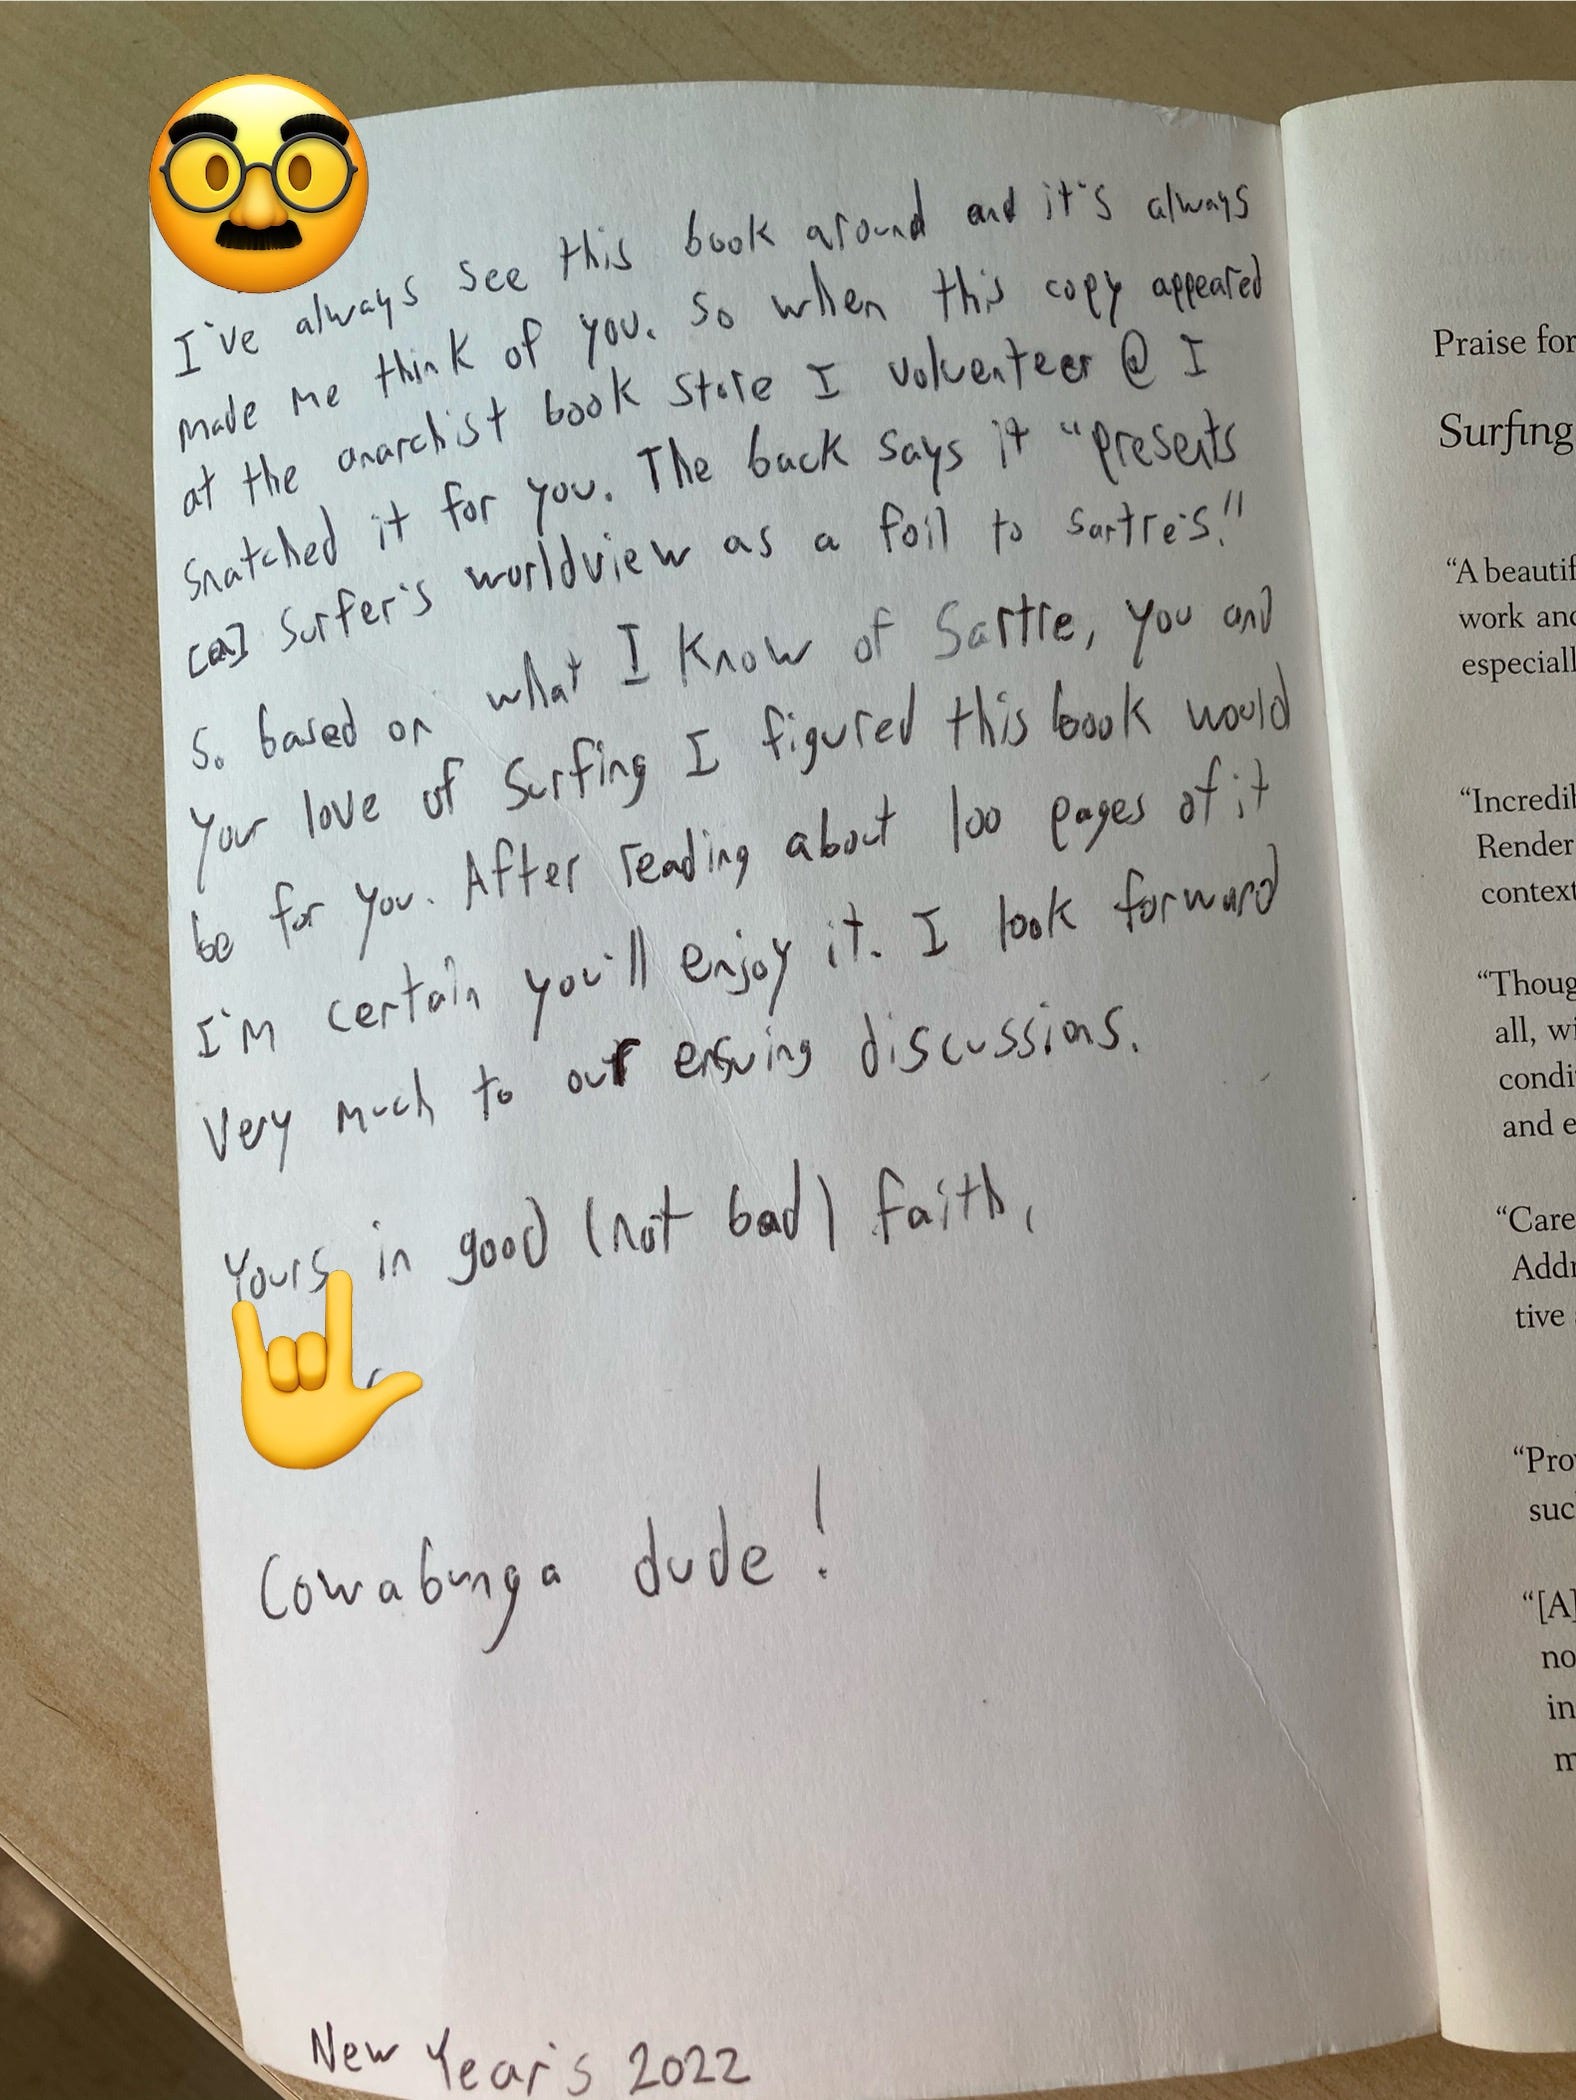 I've always see this book around and it's always
made me think of you. So when this copy appeared
at the anarchist book store I volventeer @ I
snatched it for you. The back says it "presents
[a] surfer's worldview as a foil to sartre's."
So based on what I know of Sartre, you and
your love of surfing I figured this book would
be for you. After reading about 100 pages of it
I'm certain you'll enjoy it. I look forward
very much to our ensuing discussions.
Yours in good (not bad) faith,
Cowabunga dude!
New Year's 2022
Praise for
Surfing
"A beautif
work and
especiall
"Incredib
Render
context
"Thoug
all, wi
condi
and e
"Care
Addr
tive
"Pro
suc
"[A]
no
in
m